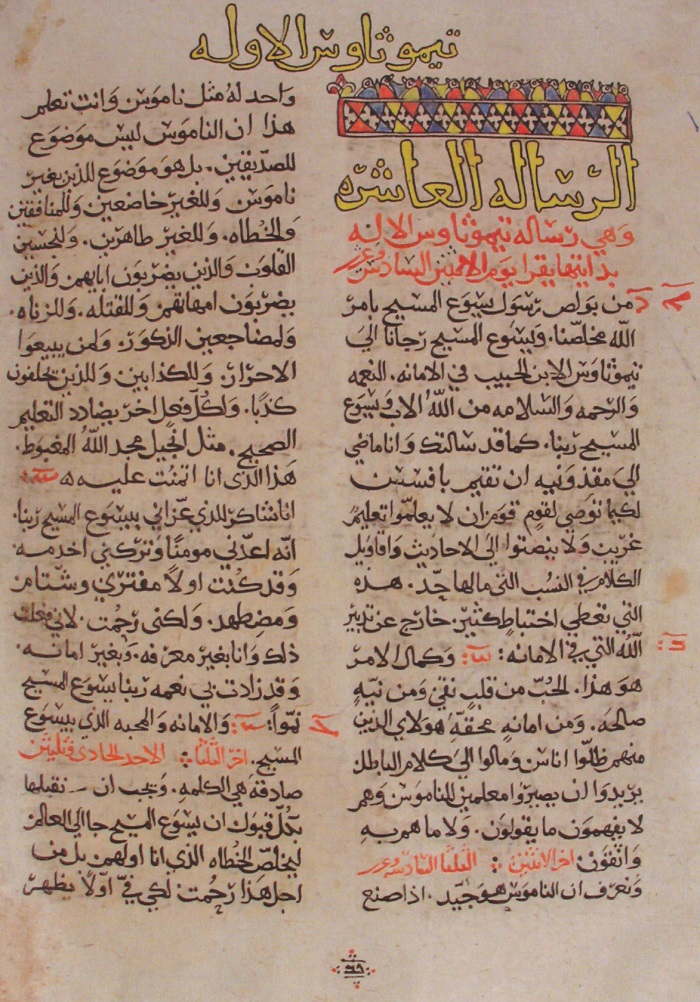 تيموثاوس الاوله
الرساله العاشره
وهي رساله تيموثاوس الاوله
بدايتها يقرا يوم الاثنين السادس عشر
من بولص رسول يسوع المسيح بامر
الله مخلصنا. ويسوع المسيح رجانا الي
تيموثاوس الابن الحبيب في الامانه. النعمه
والرحمه والسلامه من الله الاب ويسوع
المسيح ربنا. كما قد سالتك وانا ماضي
الي مقذونيه ان تقيم بافسس
لكيما توصي لقوم قوم ان لا يعلموا تعليم
غريب ولا ينصتوا الي الاحاديث واقاويل
الكلام في النسب التي مالها حد. هذه
التي تعطي اختباط كثير. خارج عن تدبير
الله التي في الامانه: وكمال الامر
هو هذا. الحب من قلب نقي ومن نيه
صالحه. ومن امانه محققه هولاي الذين
منهم ظلوا اناس ومالوا الي كلام الباطل
يريدوا ان يصيروا معلمين للناموس وهم
لا يفهمون ما يقولون. ولا ما هم به
واثقون: اخر الاثنين الثلثا السادس عشر
ونعرف ان الناموس هو جيد. اذا صنع
واحد له مثل ناموس وانت تعلم
هذا ان الناموس ليس موضوع
للصديقين. بل هو موضوع للذين بغير
ناموس وللغير خاضعين وللمنافقين
والخطاه. وللغير طاهرين. ولنجسين
القلوب والذين يضربون ابايهم والذين
يضربون امهاتهم وللقتله. وللزناه.
ولمضاجعين الذكور. ولمن يبيعوا
الاحرار. وللكذابين وللذين يحلفون
كذبا. ولكل فعل اخر يضادد التعليم
الصحيح. مثل انجيل مجد الله المغبوط.
هذا الذي انا اتمنت عليه
انا شاكر للذي عزاني بيسوع المسيح ربنا.
انه اعدني مومنا وتركني اخدمه.
وقد كنت اولا مفتري وشتام
ومضطهد. ولكني رحمت. لاني فعلت
ذلك وانا بغير معرفه. وبغير امانه.
وقد زادت بي نعمه ربنا يسوع المسيح
نموا: والامانه والمحبه الذي بيسوع
المسيح. اخر الثلثا الاحد الحادي وثلثين
صادقه هي الكلمه. ويجب ان نقبلها
بكل قبول ان يسوع المسيح جا الي العالم
ليخلص الخطاه الذي انا اولهم بل من
اجل هذا رحمت لكي في اولا يظهر